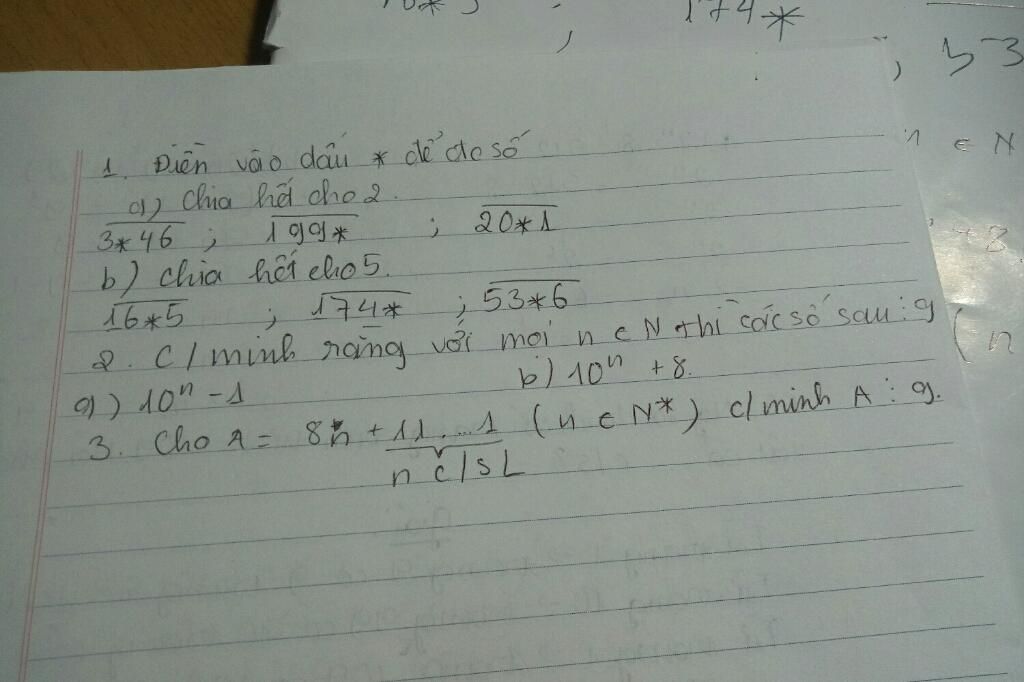 174*
53
n ∈ N
+8
(n
1. Điền vào dấu * để đc số
a) Chia hết cho 2.
3*46 ; 199* ; 20*1
b) Chia hết cho 5.
16*5 ; 174* ; 53*6
2. C/minh rằng với mọi n ∈ N thì các số sau ⋮ 9
a) 10ⁿ - 1 b) 10ⁿ + 8.
3. Cho A = 8n + 11...1 (n ∈ N*) c/minh A ⋮ 9.
n c/s 1